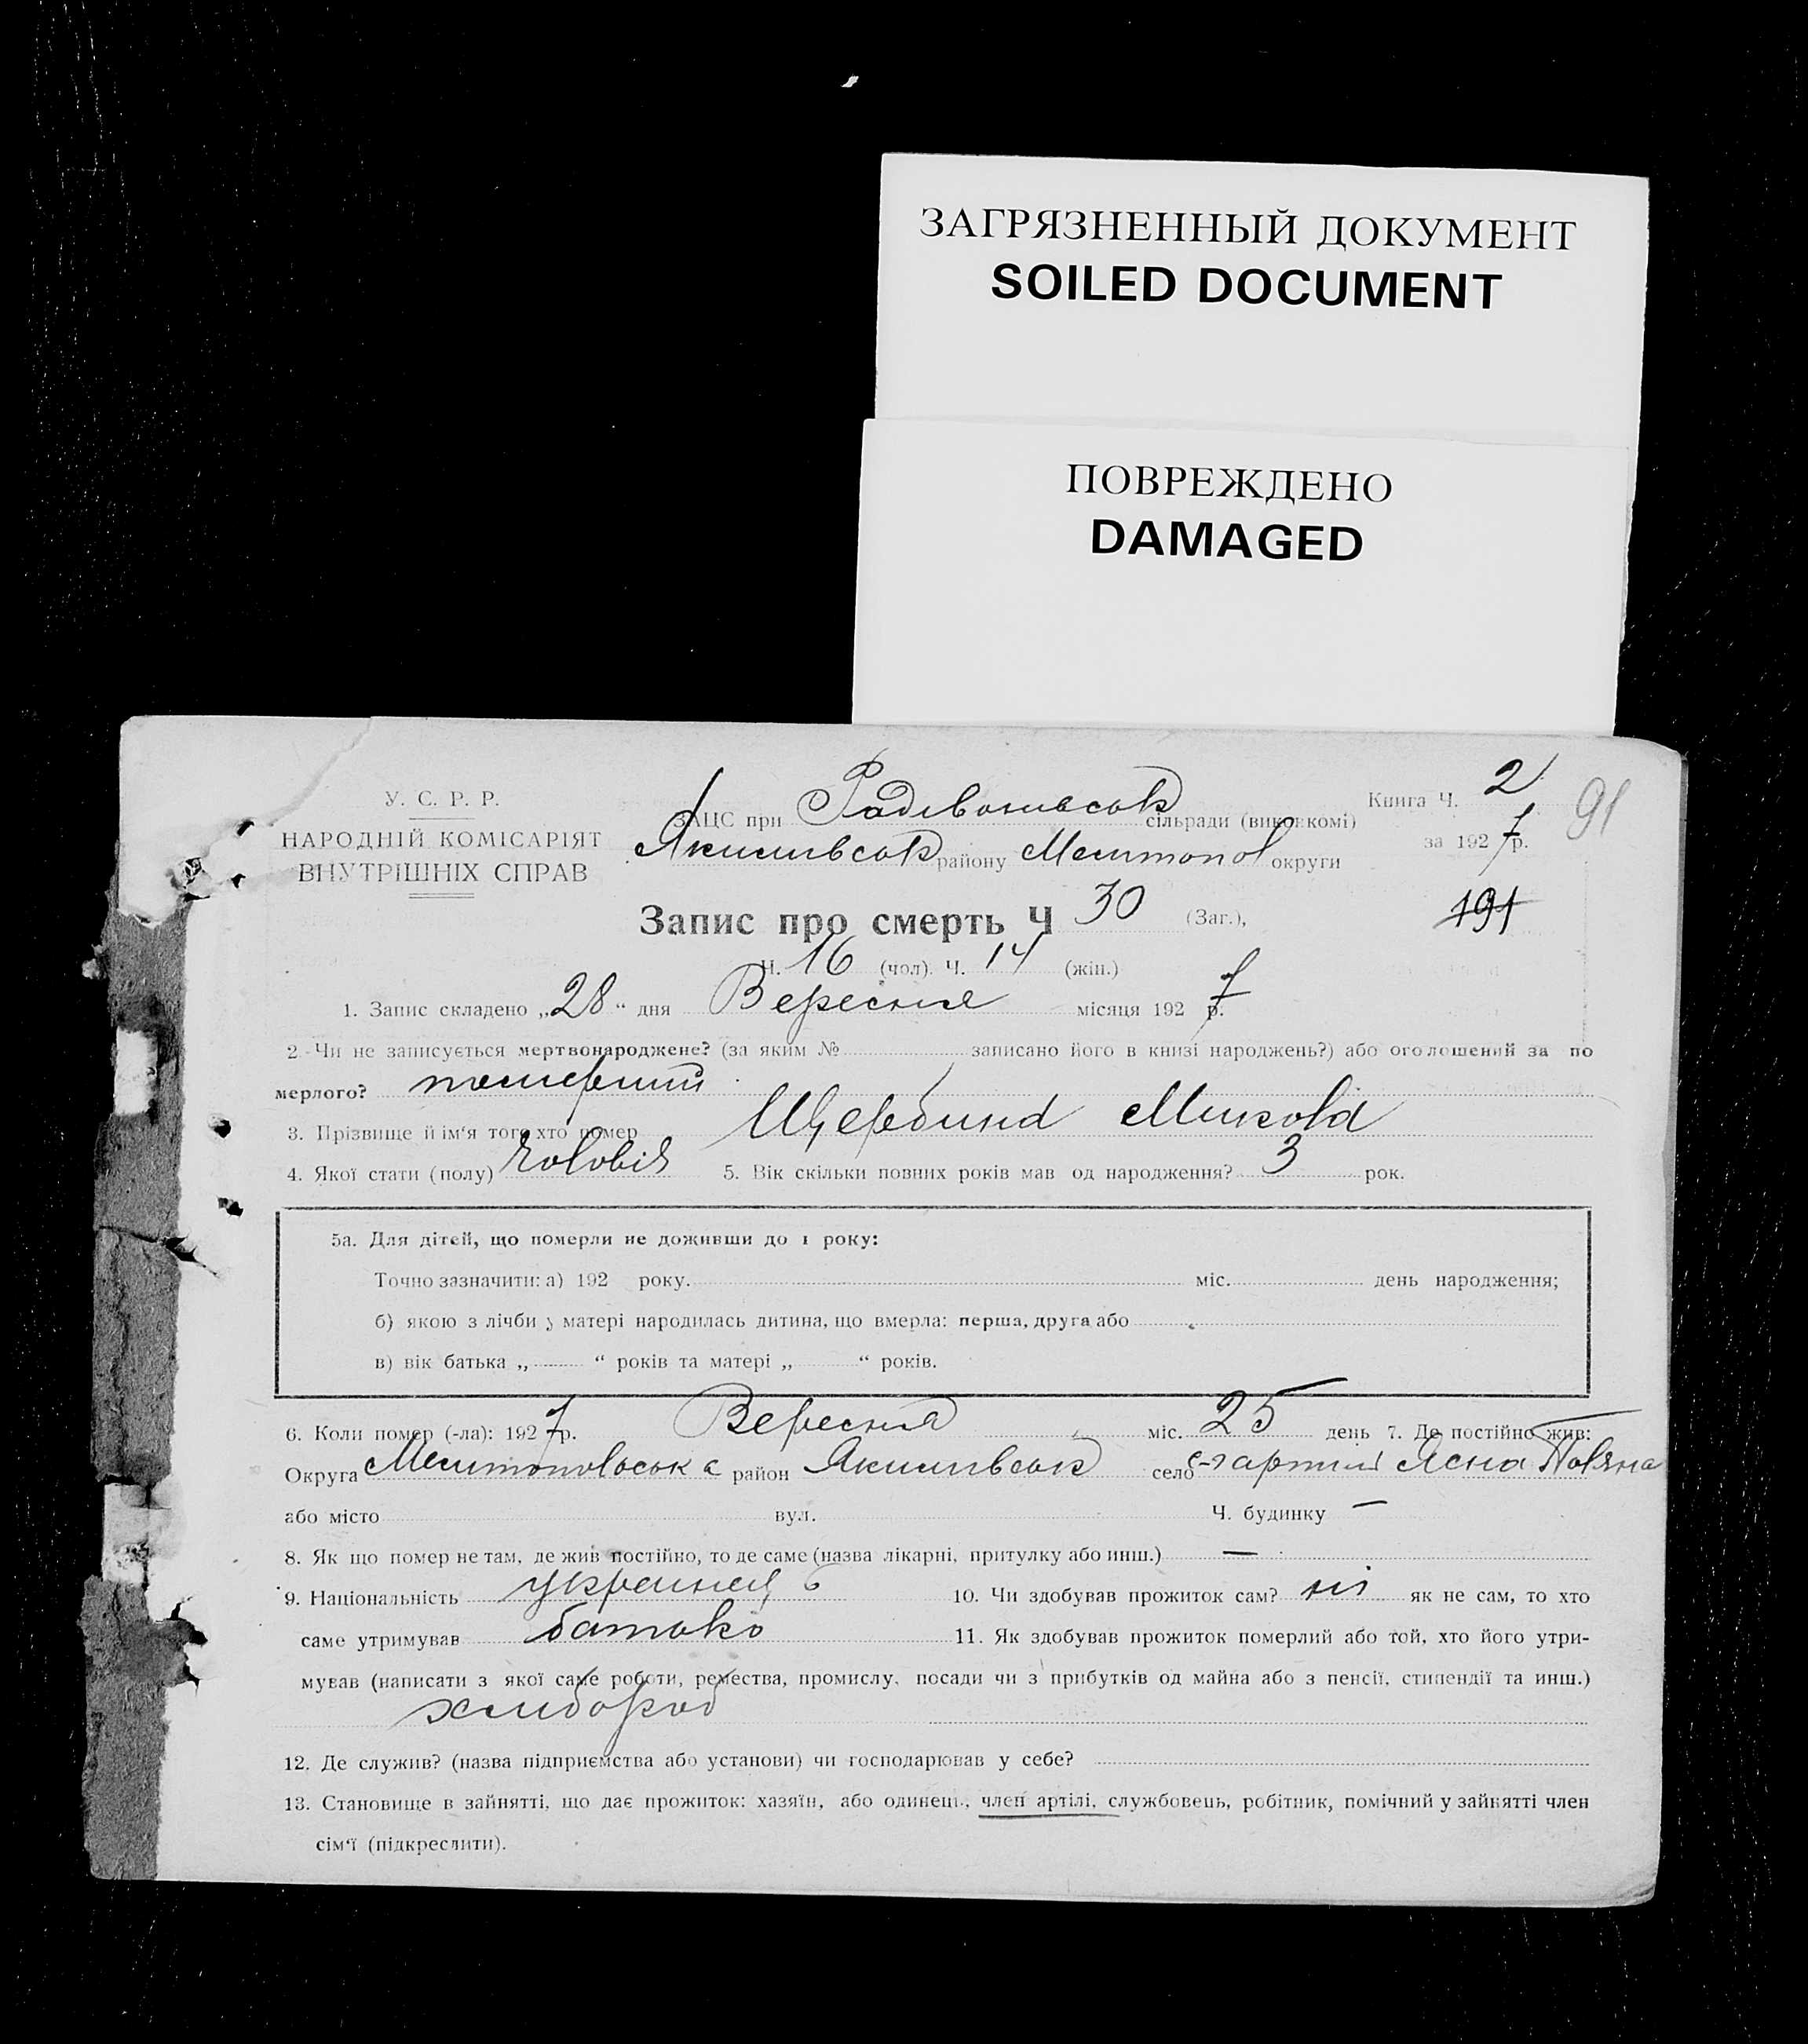 ЗАГРЯЗНЕННЫЙ ДОКУМЕНТ
SOILED DOCUMENT
ПОВРЕЖДЕНО
DAMAGED
У. С. Р. Р.
НАРОДНІЙ КОМІСАРІЯТ
ВНУТРІШНІХ СПРАВ
ЗАЦС при Радивонивськ сільради (виконкомі)
Якимивськ району Мелитопол округи
Книга Ч. 2
за 1927 р.
91
Запис про смерть Ч 30 (Заг.),
191
Ч. 16 (чол). Ч. 14 (жін.)
1. Запис складено „28“ дня Вересня місяця 1927 р.
2. Чи не записується мертвонароджене? (за яким № записано його в книзі народжень?) або оголошений за по
мерлого? померший
3. Прізвище й ім‘я того хто помер Щербина Микола
4. Якої стати (полу) чоловік 5. Вік скільки повних років мав од народження? 3 рок.
5а. Для дітей, що померли не доживши до 1 року:
Точно зазначити: а) 192 року. міс. день народження;
б) якою з лічби у матері народилась дитина, що вмерла: перша, друга або
в) вік батька „ “ років та матері „ “ років.
6. Коли помер (-ла): 1927 р. Вересня міс. 25 день 7. Де постійно жив:
Округа Мелитопольська район Якимивськ село с-г артиль Ясна Поляна
або місто вул. Ч. будинку —
8. Як що помер не там, де жив постійно, то де саме (назва лікарні, притулку або инш.) —
9. Національність украинец 10. Чи здобував прожиток сам? ні як не сам, то хто
саме утримував батько 11. Як здобував прожиток померлий або той, хто його утри-
мував (написати з якої саме роботи, ремества, промислу, посади чи з прибутків од майна або з пенсії, стипендії та инш.)
хлибороб
12. Де служив? (назва підприємства або установи) чи господарював у себе?
13. Становище в зайнятті, що дає прожиток: хазяїн, або одинець, член артілі, службовець, робітник, помічний у зайнятті член
сім‘ї (підкреслити).